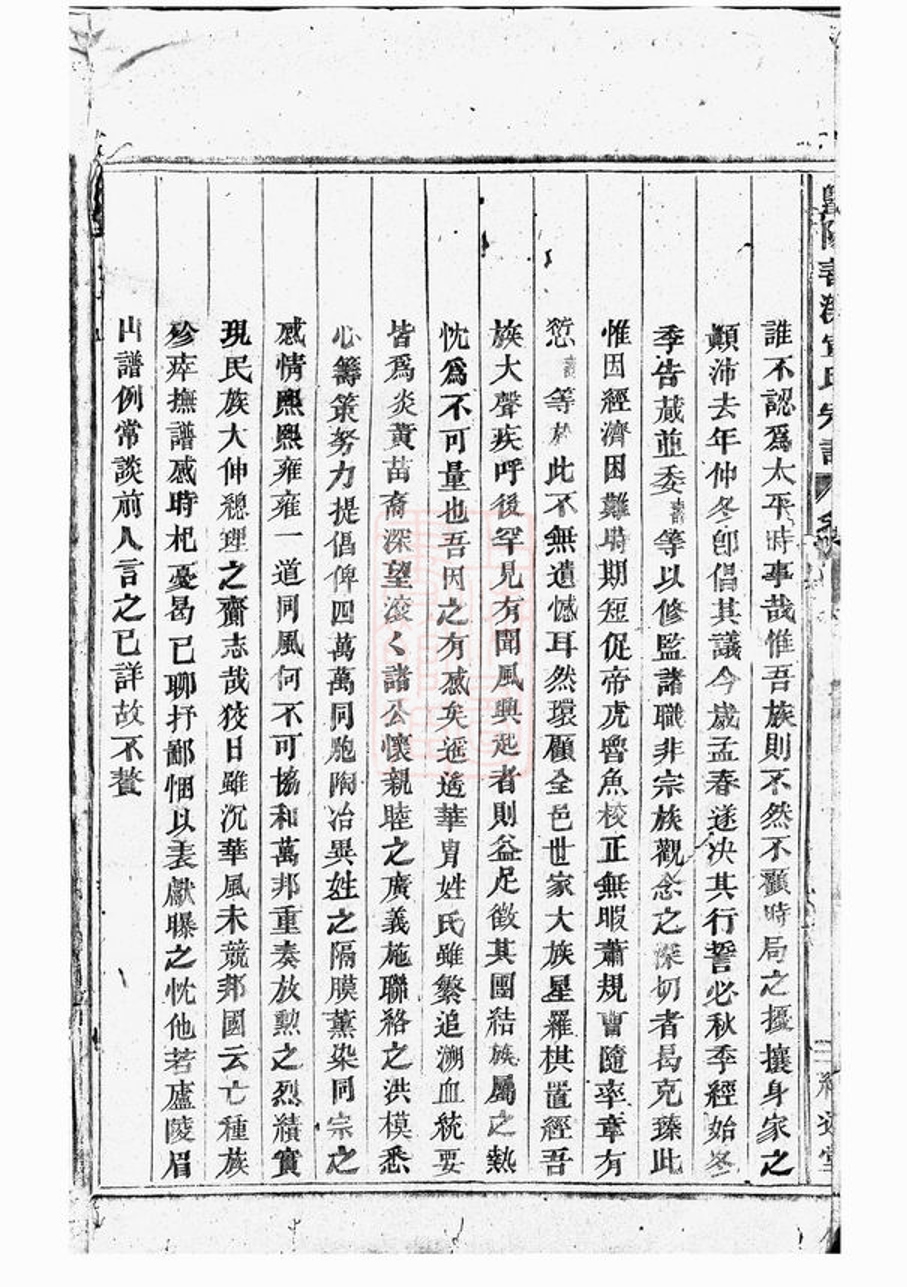 誰不認爲太平時事哉惟吾族則不然不顧時局之擾攘身家之
顚沛去年仲冬卽倡其議今歲孟春遂决其行誓必秋季經始冬
季告蕆並委等以修監諸職非宗族觀念之深切者曷克臻此
惟因經濟困難時期短促帝虎魯魚校正無暇蕭規曹隨率章有
愆等於此不無遺憾耳然環顧全邑世家大族星羅棋置經吾
族大聲疾呼後罕見有聞風興起者則益足徵其團結族屬之熱
忱爲不可量也吾因之有感矣遥遥華胄姓氏雖繁追溯血統要
皆爲炎黃苗裔深望滾く諸公懷親睦之廣義施聯絡之洪模悉
心籌策努力提倡俾四萬萬同胞陶冶異姓之隔膜薰染同宗之
感情熙熙雍雍一道同風何不可協和萬邦重奏放勲之烈績實
現民族大仲總理之齎志哉狡日雖沉華風未競邦國云亡種族
殄瘁撫譜感時杞憂曷已聊抒鄙悃以表獻曝之忱他若廬陵眉
山譜例常談前人言之已詳故不贅